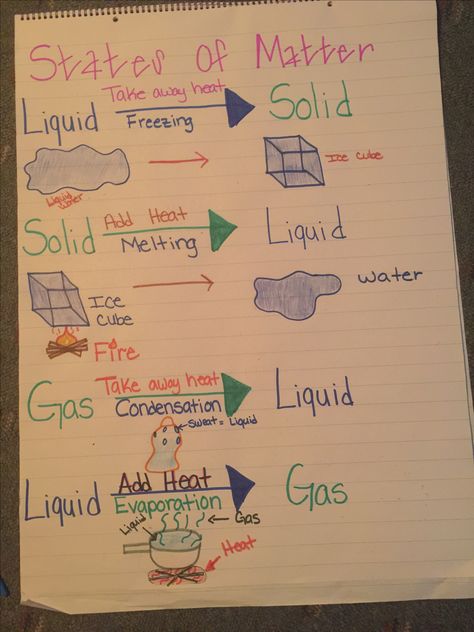 States Of Matter
Liquid Take away heat Solid
Freezing
Liquid water
Ice cube
Solid Add Heat Liquid
Melting
Ice Cube
water
Fire
Gas Take away heat Liquid
Condensation
sweat = Liquid
Liquid Add Heat Gas
Evaporation
Liquid
Gas
Heat